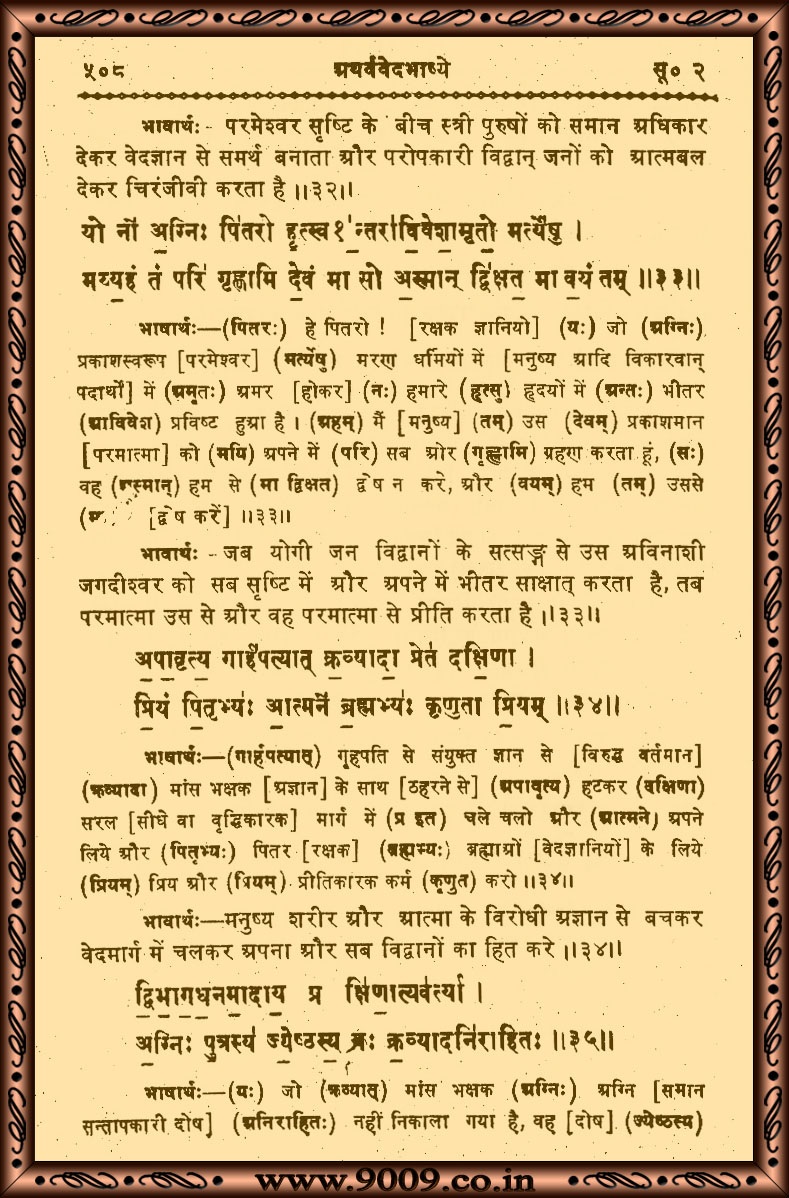 ५०८ अथर्ववेदभाष्ये सू० २
भावार्थः- परमेश्वर सृष्टि के बीच स्त्री पुरुषों को समान अधिकार
देकर वेदज्ञान से समर्थ बनाता और परोपकारी विद्वान् जनों को आत्मबल
देकर चिरंजीवी करता है ॥३२॥
यो नो॑ अ॒ग्निः पि॑तरो हृ॒त्स्व१॒॑न्तरा॑वि॒वेशा॒मृतो॒ मर्त्ये॑षु ।
मय्य॒हं तं परि॑ गृह्णामि दे॒वं मा सो अ॒स्मान् द्वि॑क्षत॒ मा व॒यं तम् ॥३३॥
भाषार्थः—(पितरः) हे पितरो ! [रक्षक ज्ञानियो] (यः) जो (अग्निः)
प्रकाशस्वरूप [परमेश्वर] (मर्त्येषु) मरण धर्मियों में [मनुष्य आदि विकारवान्
पदार्थों] में (अमृतः) अमर [होकर] (नः) हमारे (हृत्सु) हृदयों में (अन्तः) भीतर
(आविवेश) प्रविष्ट हुआ है । (अहम्) मैं [मनुष्य] (तम्) उस (देवम्) प्रकाशमान
[परमात्मा] को (मयि) अपने में (परि) सब ओर (गृह्णामि) ग्रहण करता हूं, (सः)
वह (अस्मान्) हम से (मा द्विक्षत) द्वेष न करे, और (वयम्) हम (तम्) उससे
[द्वेष करें] ॥३३॥
भावार्थः - जब योगी जन विद्वानों के सत्सङ्ग से उस अविनाशी
जगदीश्वर को सब सृष्टि में और अपने में भीतर साक्षात् करता है, तब
परमात्मा उस से और वह परमात्मा से प्रीति करता है ॥३३॥
अ॒पा॒वृत्य॒ गार्ह॑पत्यात् क्र॒व्यादा॒ प्रेत॑ दक्षि॒णा ।
प्रि॒यं पि॒तृभ्यः॑ आ॒त्मने॑ ब्र॒ह्मभ्यः॑ कृणुता प्रि॒यम् ॥३४॥
भाषार्थः—(गार्हपत्यात्) गृहपति से संयुक्त ज्ञान से [विरुद्ध वर्तमान]
(क्रव्यादा) मांस भक्षक [अज्ञान] के साथ [ठहरने से] (अपावृत्य) हटकर (दक्षिणा)
सरल [सीधे वा वृद्धिकारक] मार्ग में (प्र इत) चले चलो और (आत्मने) अपने
लिये और (पितृभ्यः) पितर [रक्षक] (ब्रह्मभ्यः) ब्रह्माओं [वेदज्ञानियों] के लिये
(प्रियम्) प्रिय और (प्रियम्) प्रीतिकारक कर्म (कृणुत) करो ॥३४॥
भावार्थः—मनुष्य शरीर और आत्मा के विरोधी अज्ञान से बचकर
वेदमार्ग में चलकर अपना और सब विद्वानों का हित करे ॥३४॥
द्वि॒भा॒ग॒ध॒नमा॒दाय॒ प्र क्षि॑णा॒त्यव॑र्त्या ।
अ॒ग्निः पु॒त्रस्य॑ ज्ये॒ष्ठस्य॒ यः क्र॒व्यादनि॑राहितः ॥३५॥
भाषार्थः—(यः) जो (क्रव्यात्) मांस भक्षक (अग्निः) अग्नि [समान
सन्तापकारी दोष] (अनिराहितः) नहीं निकाला गया है, वह [दोष] (ज्येष्ठस्य)
www.9009.co.in